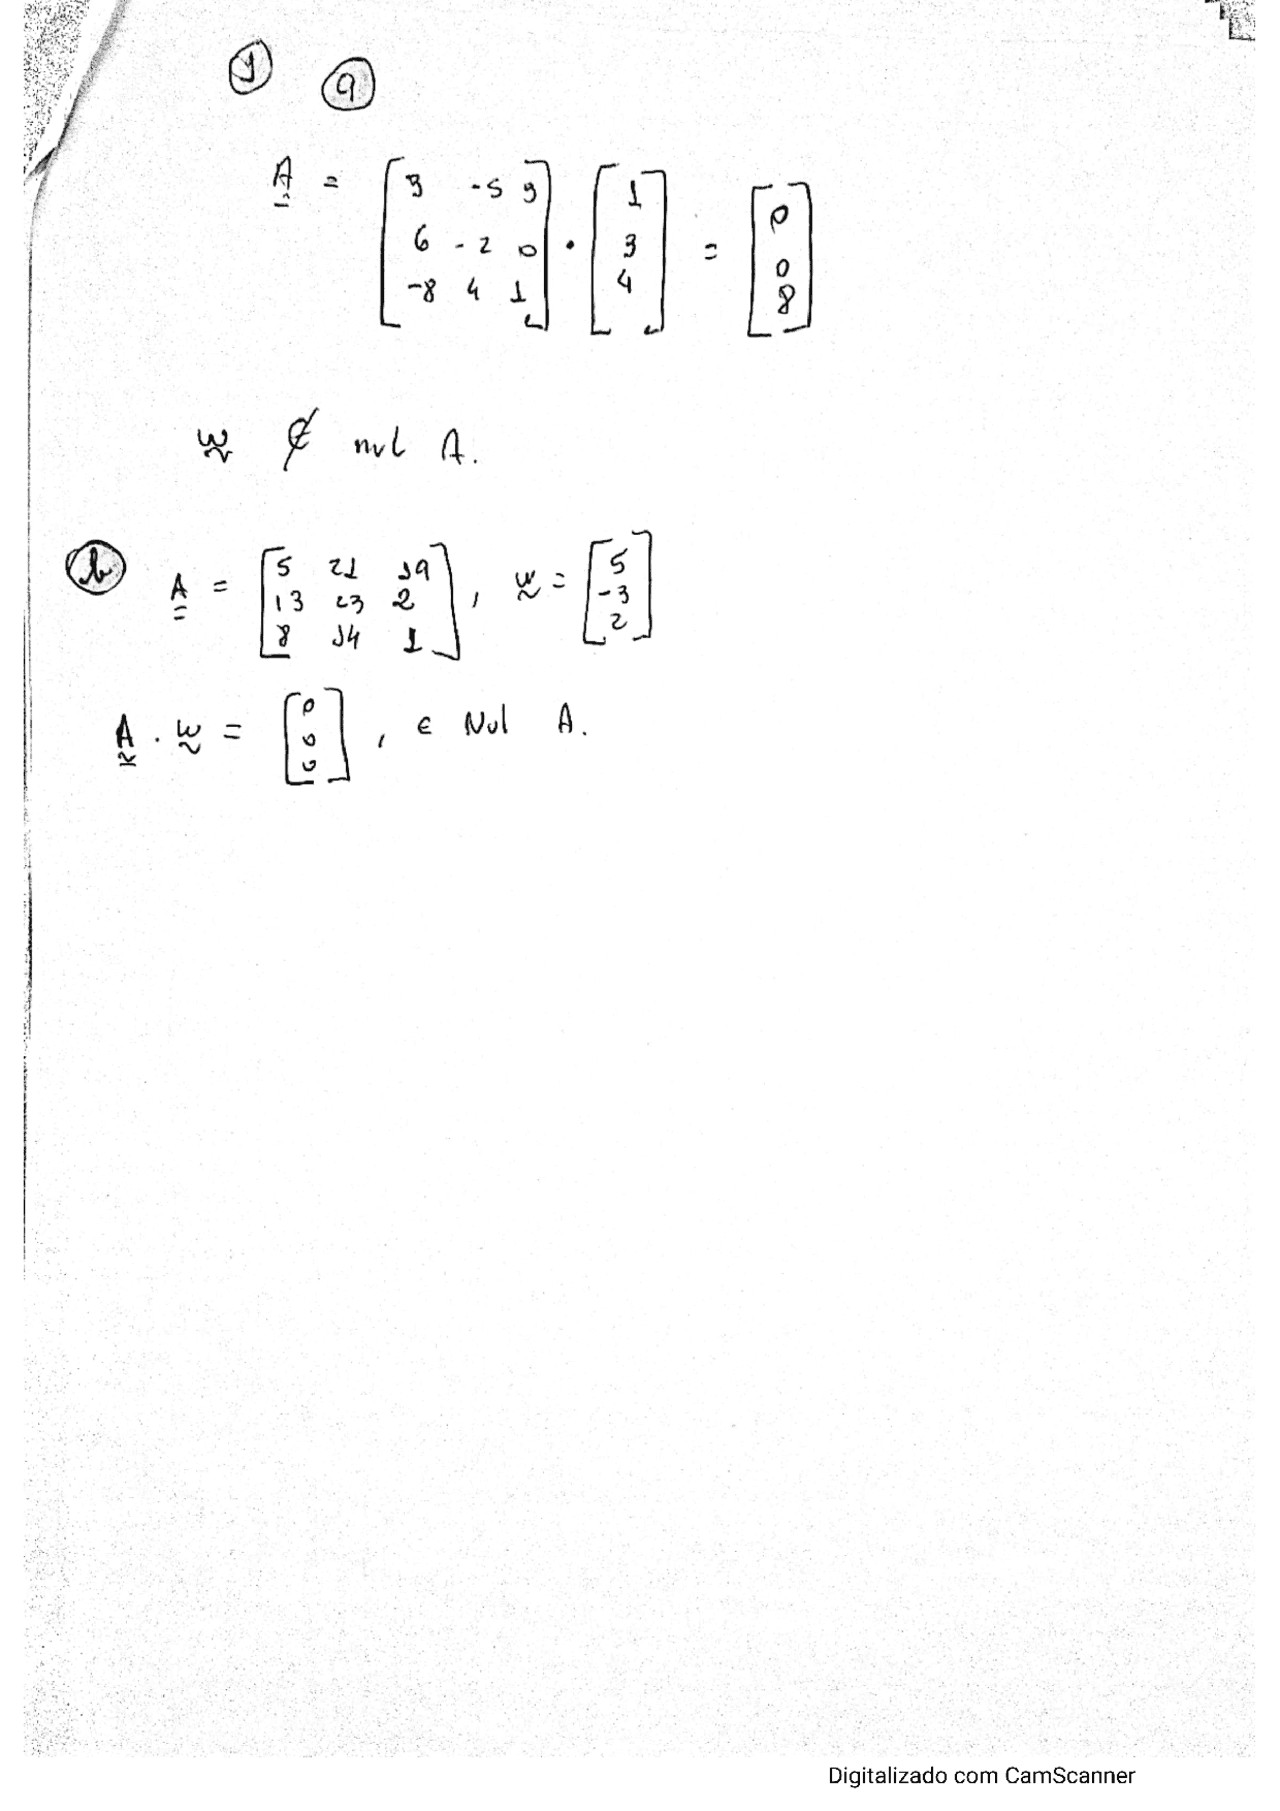 1 a
A = [3 -5 3; 6 -2 0; -8 4 1] · [1; 3; 4] = [0; 0; 8]
w ∉ nul A.
b A = [5 21 19; 13 23 2; 8 14 1], w = [5; -3; 2]
A · w = [0; 0; 0], ∈ Nul A.
Digitalizado com CamScanner